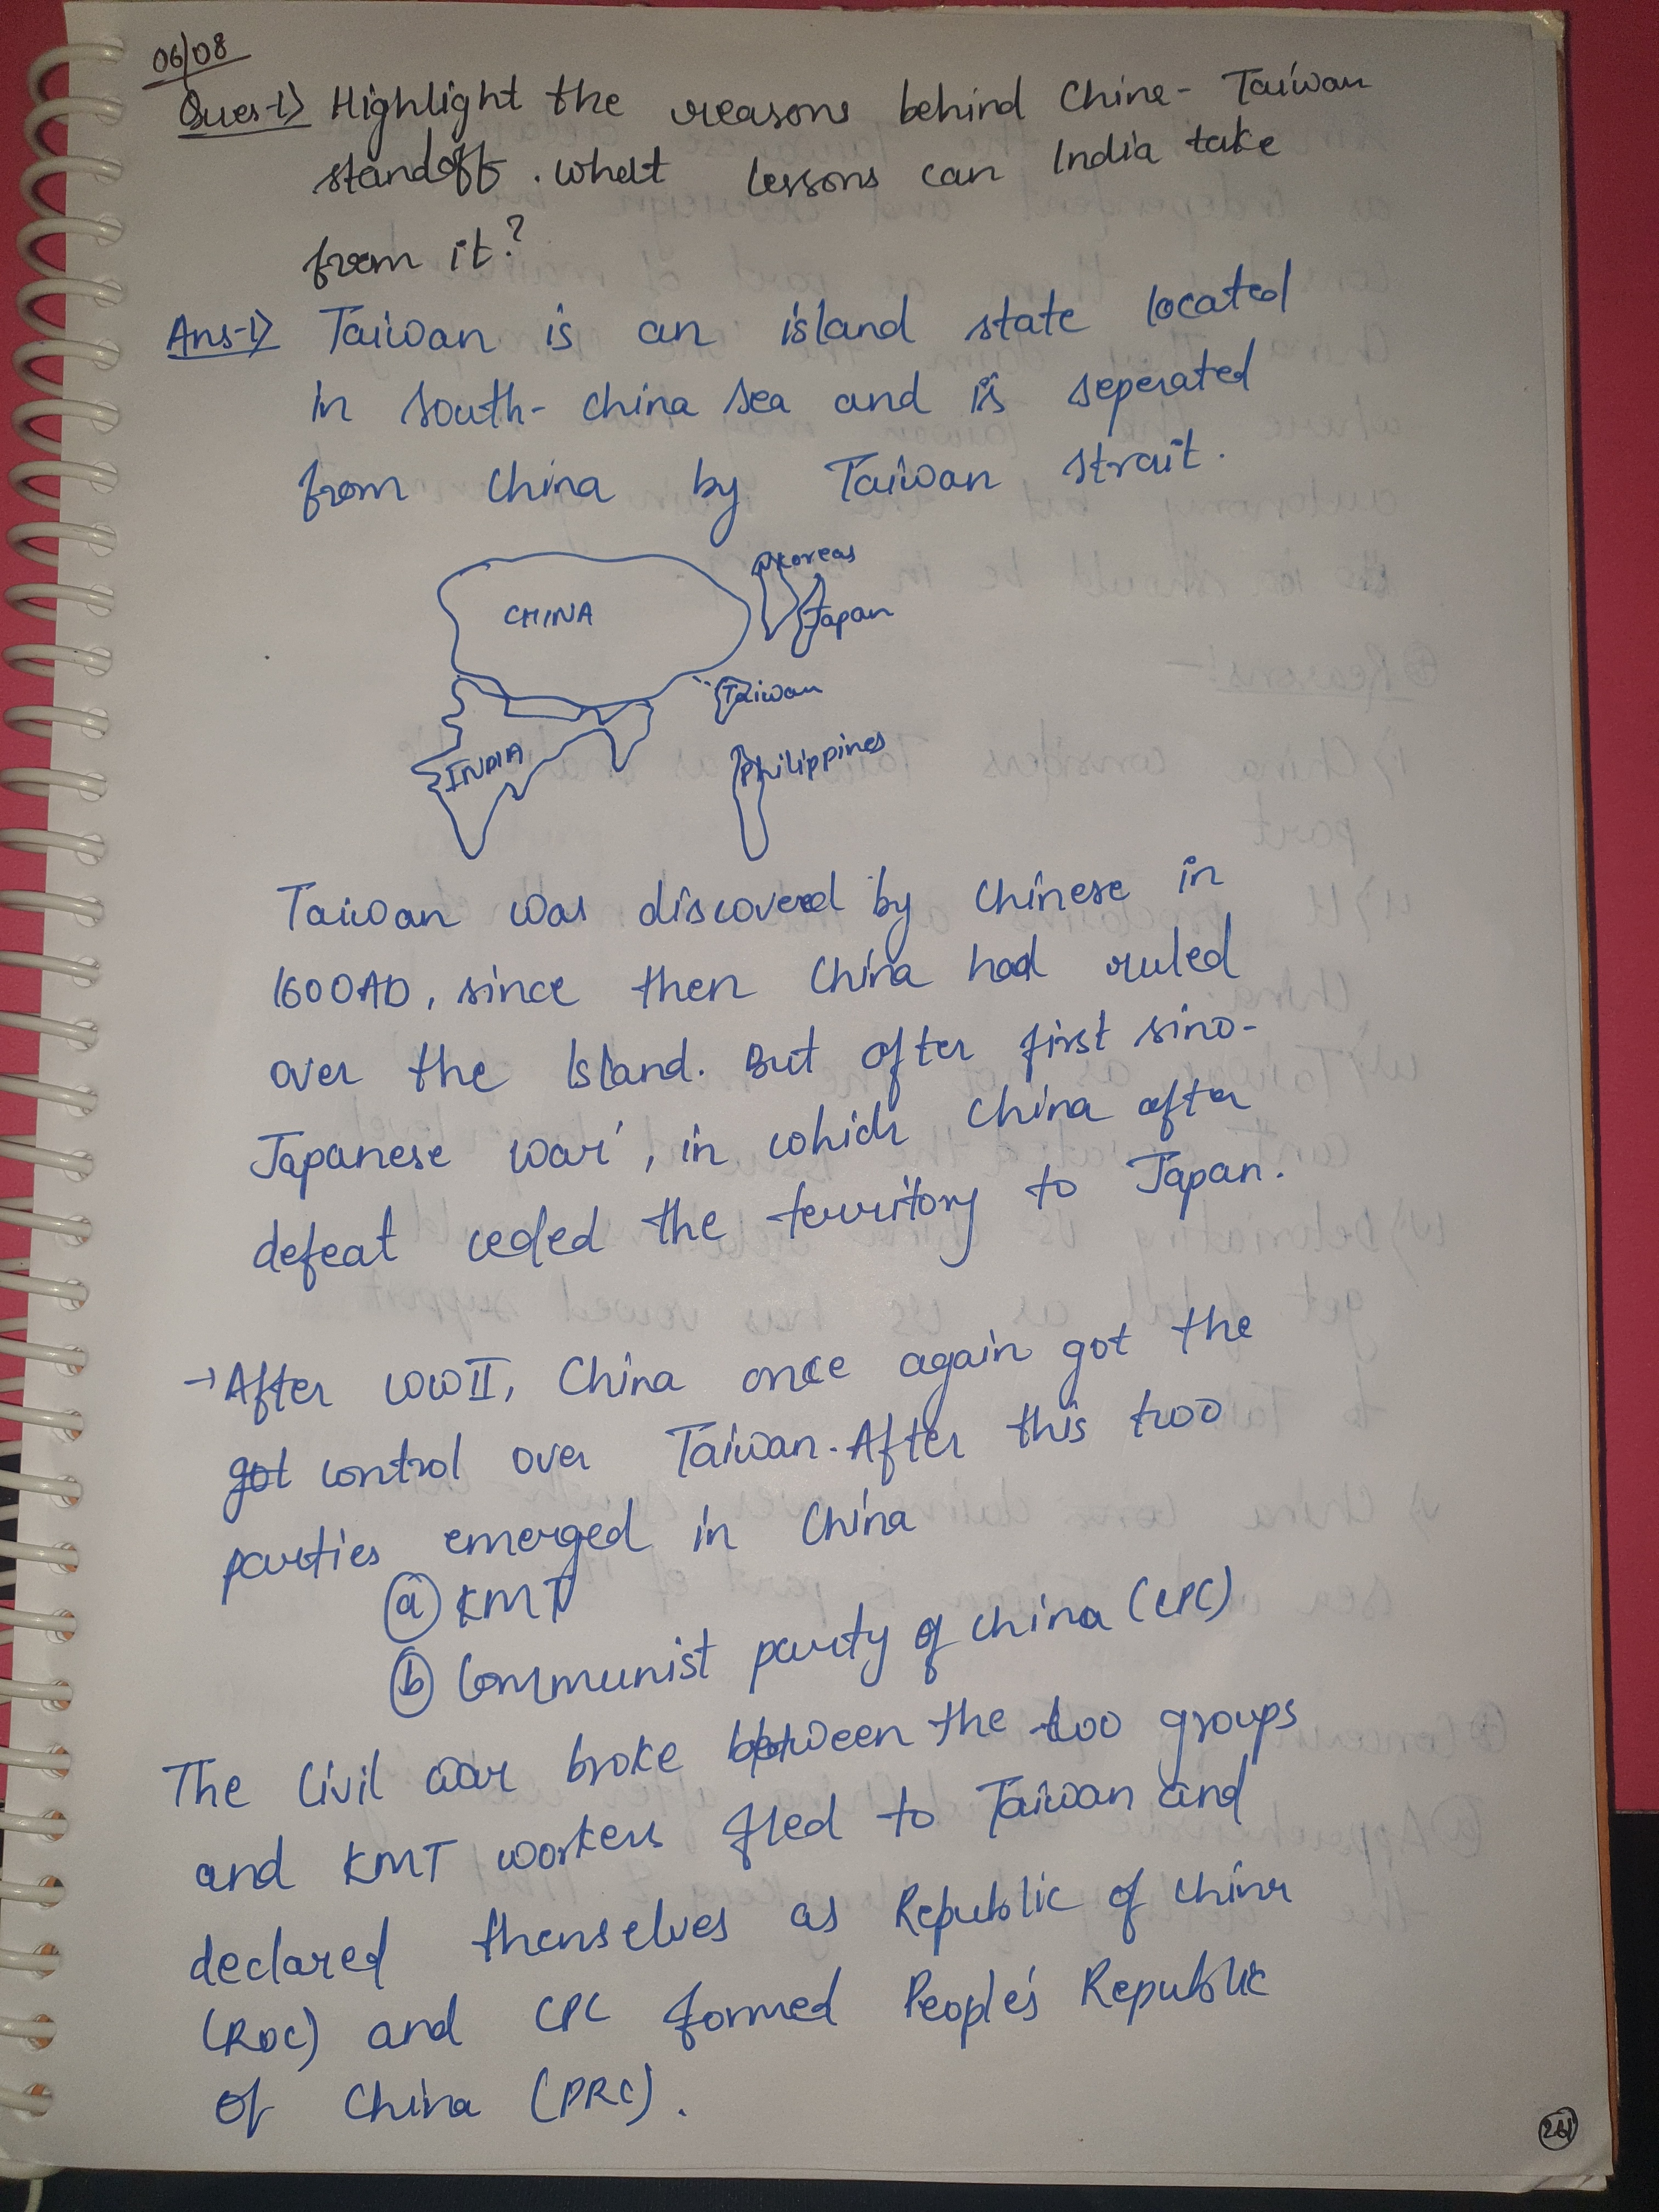 06/08
Ques-1) Highlight the reasons behind Chine- Taiwan
standoff. what lessons can India take
from it?
Ans-1) Taiwan is an island state located
in south- china sea and is seperated
from China by Taiwan strait.
Koreas
CHINA
Japan
Taiwan
INDIA
Philippines
Taiwan was discovered by Chinese in
1600AD, since then China had ruled
over the Island. But after first sino-
Japanese war', in which China after
defeat ceded the territory to Japan.
→ After WWII, China once again got the
got control over Taiwan. After this two
parties emerged in China
(a) KMT
(b) Communist party of china (CPC)
The Civil war broke between the two groups
and KMT workers fled to Taiwan and
declared themselves as Republic of china
(ROC) and CPC formed People's Republic
of China (PRC).